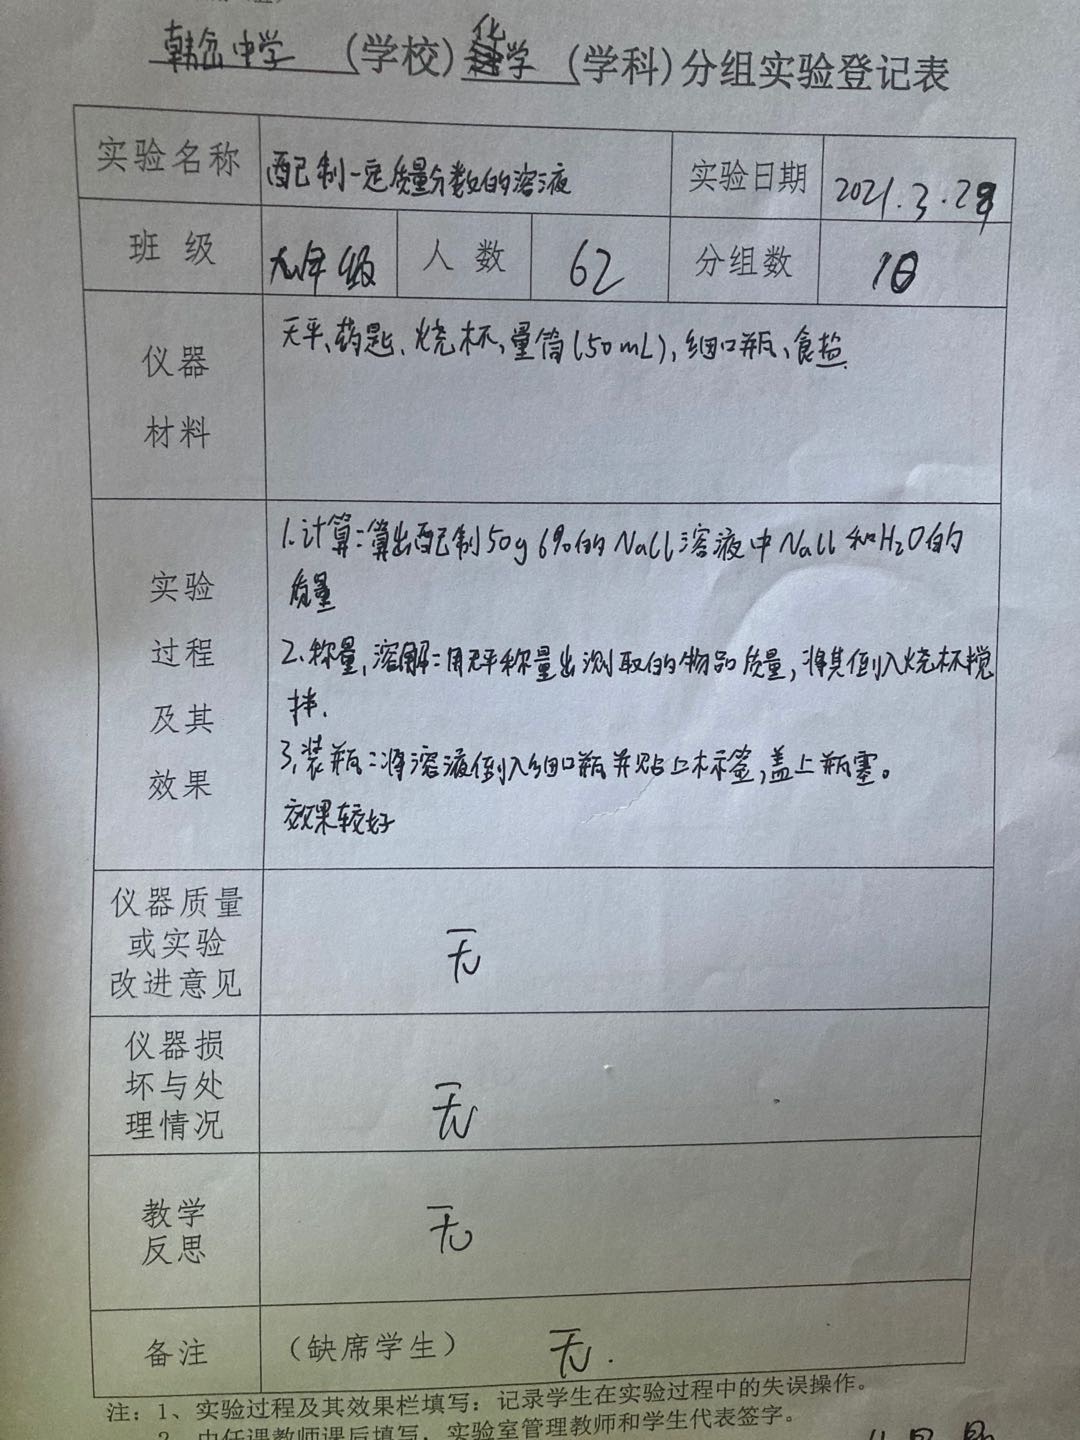 韩岔中学 (学校) 化学 (学科) 分组实验登记表
实验名称 配制一定质量分数的溶液 实验日期 2021.3.29
班 级 九年级 人 数 62 分组数 10
仪器
材料
天平、药匙、烧杯、量筒(50mL)、细口瓶、食盐.
实验
过程
及其
效果
1.计算:算出配制50g 6%的NaCl溶液中NaCl和H2O的
质量
2.称量,溶解:用天平称量出测取的物品质量,将其倒入烧杯搅
拌.
3.装瓶:将溶液倒入细口瓶并贴上标签,盖上瓶塞。
效果较好
仪器质量
或实验
改进意见
无
仪器损
坏与处
理情况
无
教学
反思
无
备注 (缺席学生) 无.
注:1、实验过程及其效果栏填写:记录学生在实验过程中的失误操作。
2、由任课教师课后填写,实验室管理教师和学生代表签字。